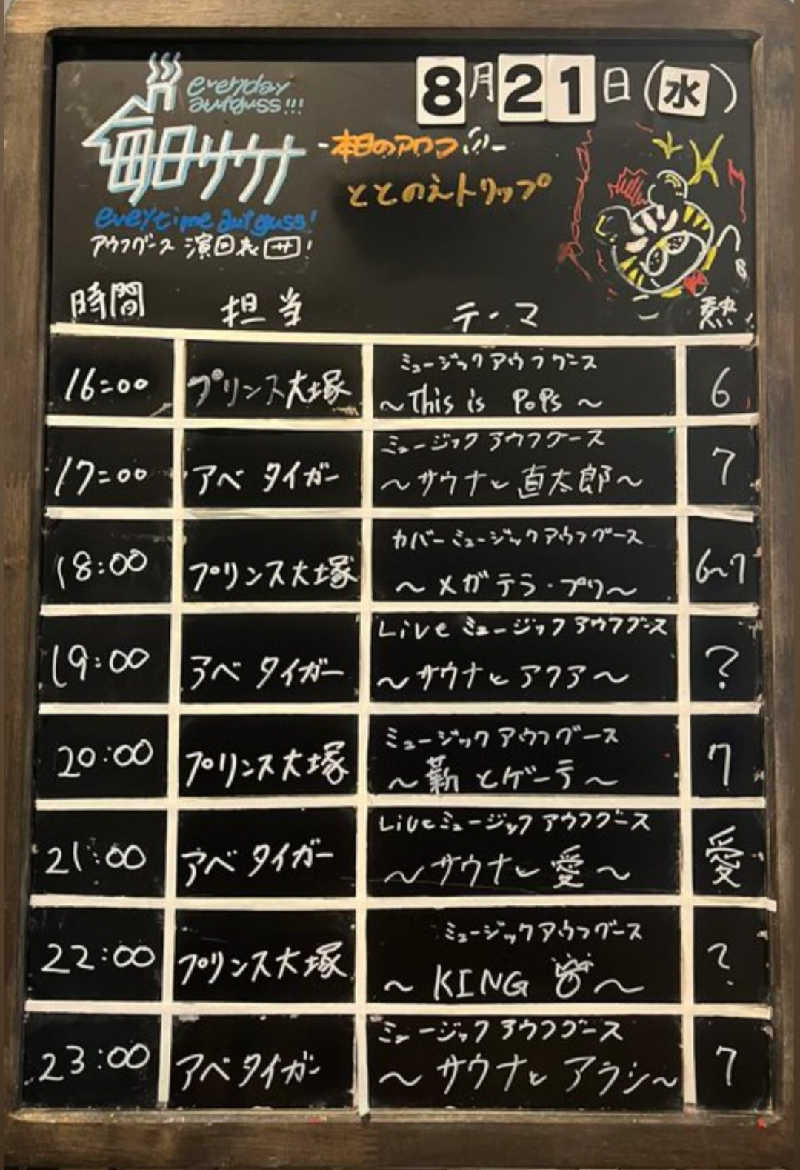 everyday
aufguss!!!
毎日サウナ
everytime aufguss!
アウフグース 演目表 サ!
8月21日(水)
-本日のアウフ
ととのえトリップ
時間 担当 テーマ 熱
16:00 プリンス大塚 ミュージックアウフグース
~This is PoPs~ 6
17:00 アベ タイガー ミュージック アウフグース
~サウナと 直太郎~ 7
18:00 プリンス大塚 カバーミュージックアウフグース
~メガテラ・プリ~ 6~7
19:00 アベ タイガー Live ミュージック アウフグース
~サウナと アクア~ ?
20:00 プリンス大塚 ミュージック アウフグース
~薪とゲーテ~ 7
21:00 アベ タイガー Live ミュージック アウフグース
~サウナと 愛~ 愛
22:00 プリンス大塚 ミュージックアウフグース
~KING~ ?
23:00 アベタイガー ミュージック アウフグース
~サウナと アラシ~ 7